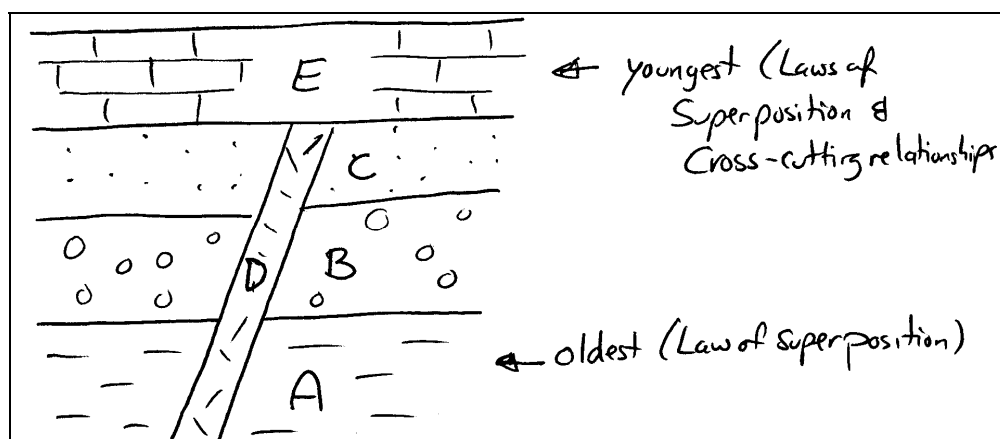 E
youngest (Laws of
Superposition &
Cross-cutting relationships
C
D
B
oldest (Law of superposition)
A